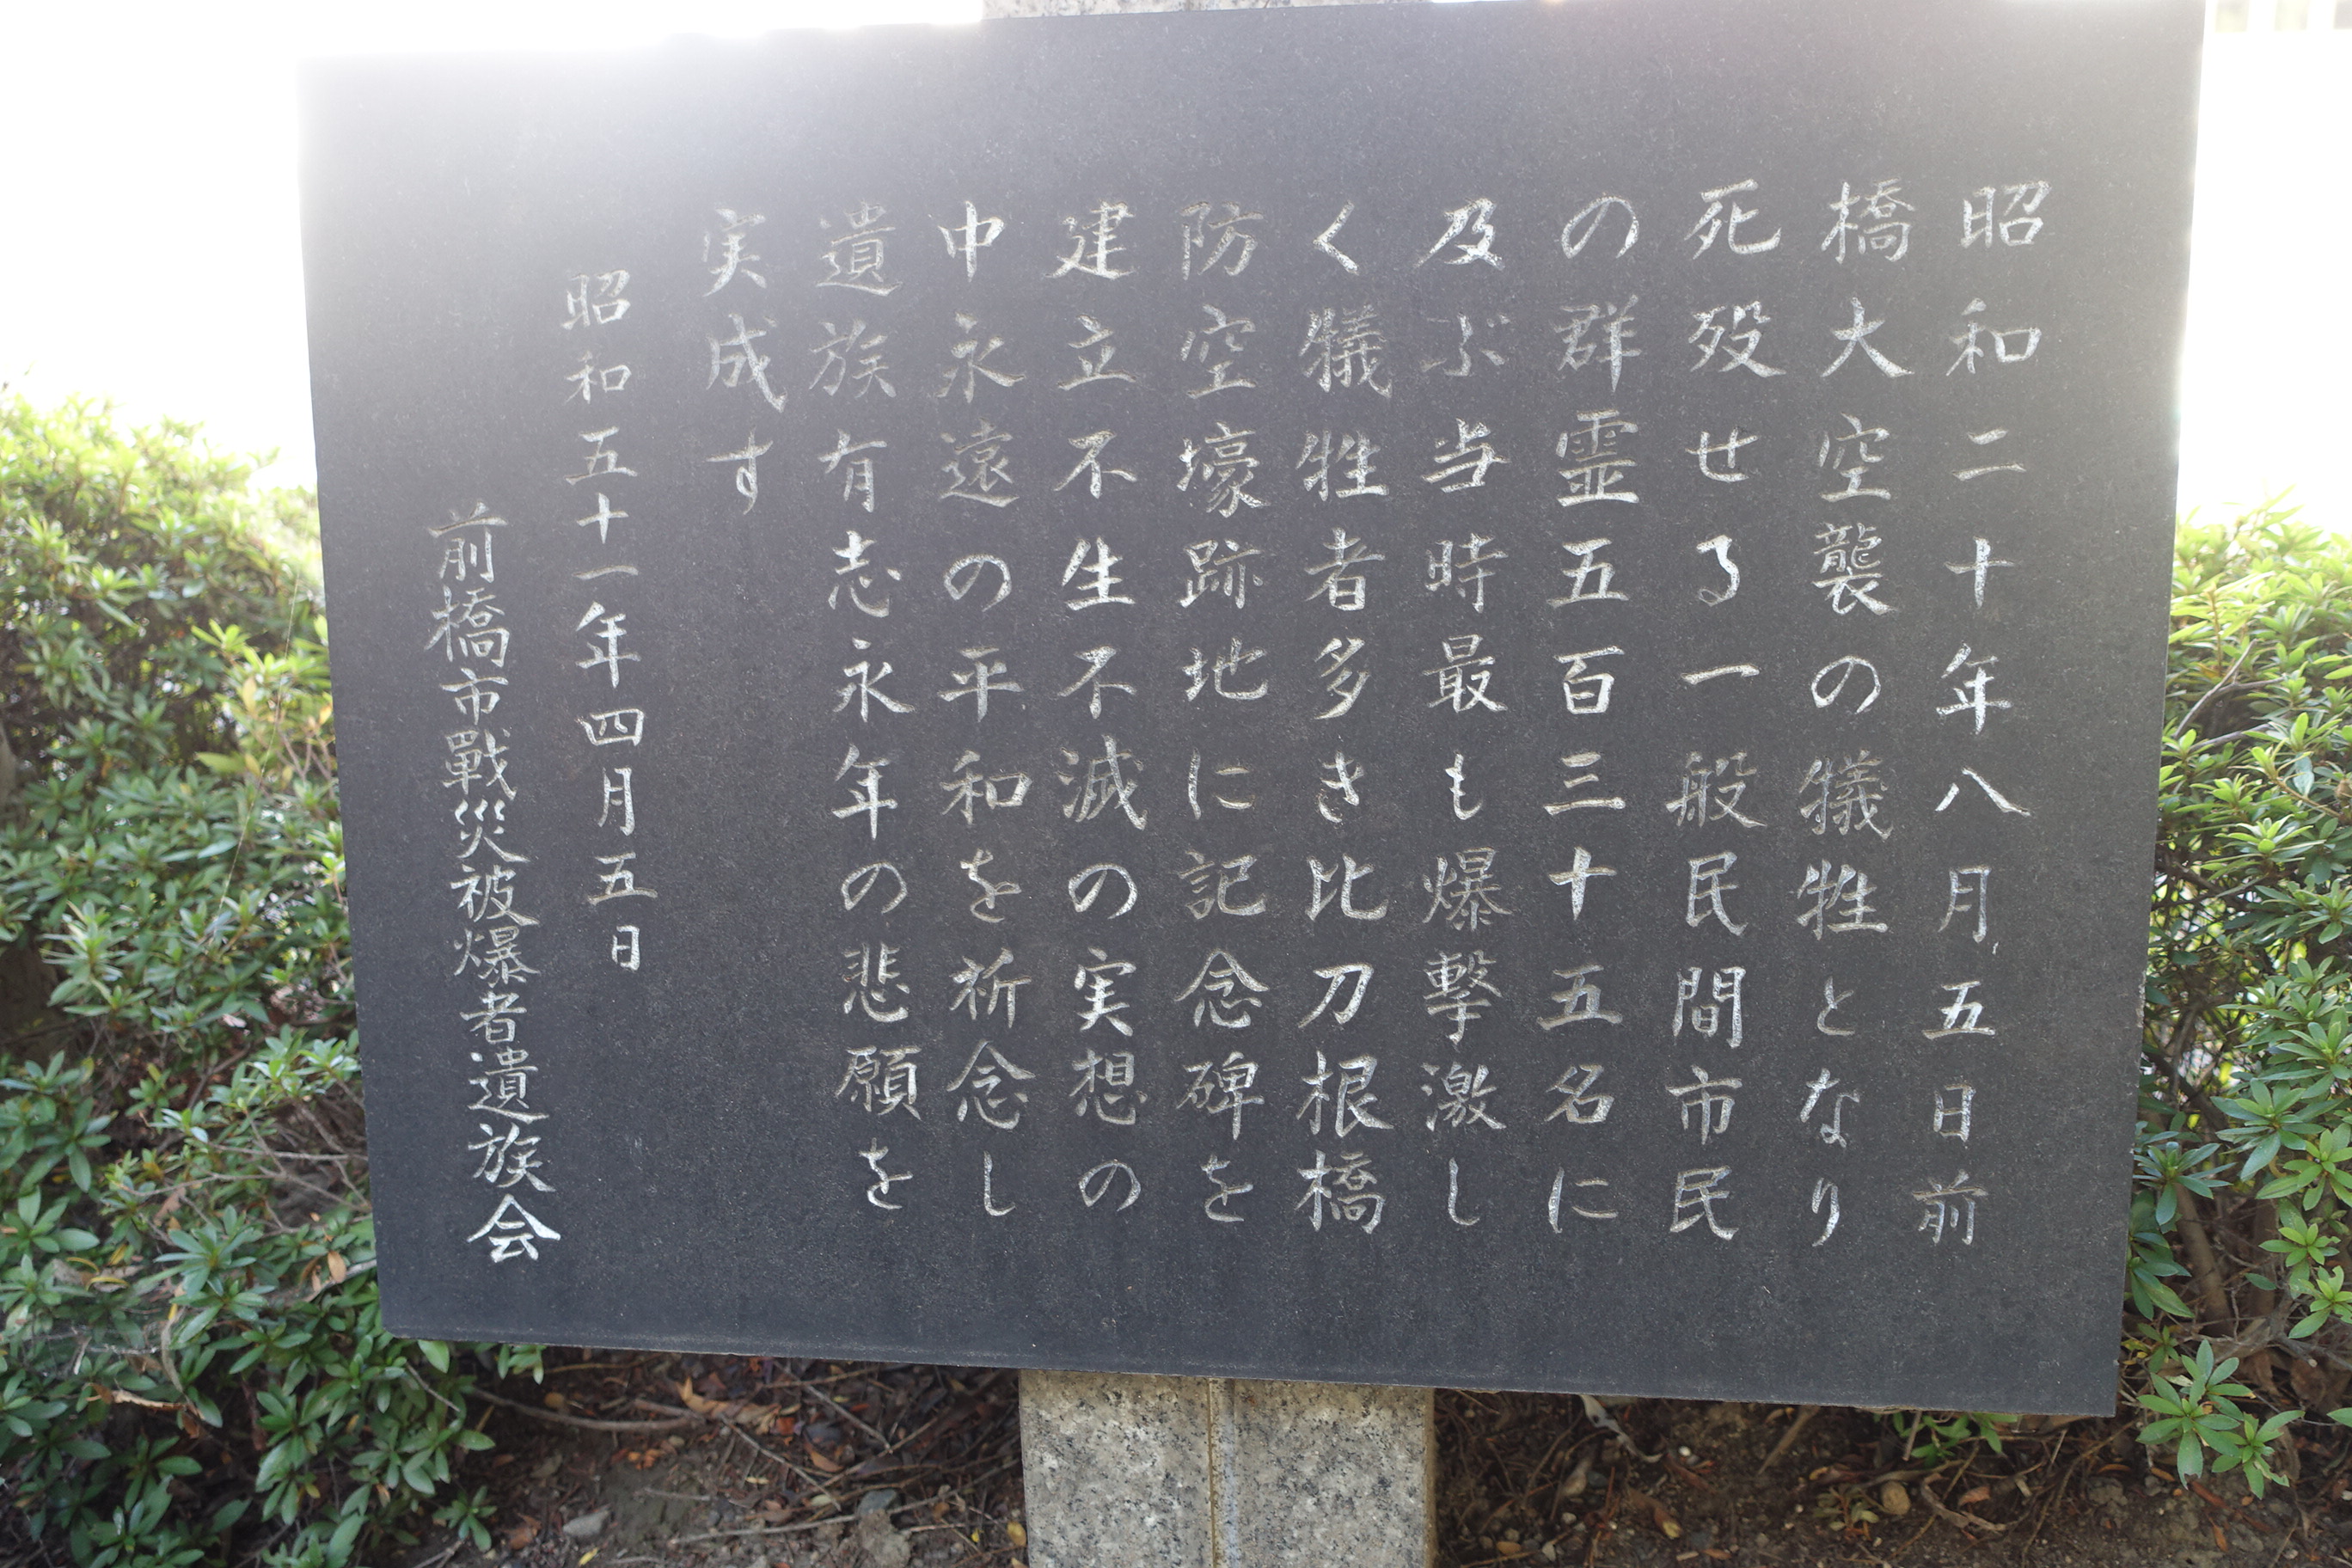 昭和二十年八月五日前
橋大空襲の犠牲となり
死歿せる一般民間市民
の群霊五百三十五名に
及ぶ当時最も爆撃激し
く犠牲者多き比刀根橋
防空壕跡地に記念碑を
建立不生不滅の実想の
中永遠の平和を祈念し
遺族有志永年の悲願を
実成す
昭和五十一年四月五日
前橋市戰災被爆者遺族会